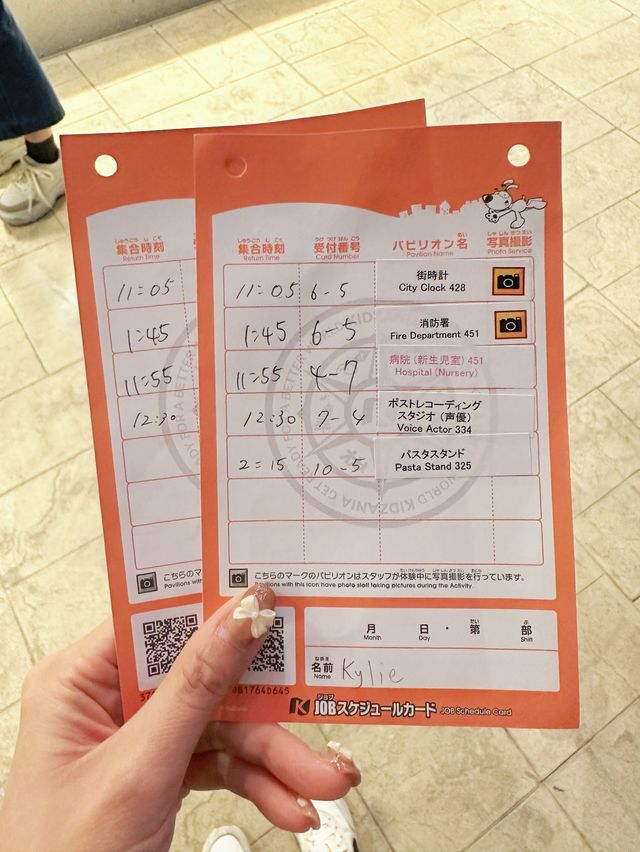 集合時刻
Return Time
11:05
1:45
11:55
12:30
こちらのマークの
Pavilions with
しゅうごうじこく
集合時刻
Return Time
うけつけばんごう
受付番号
Card Number
パビリオン名
めい
Pavilion Name
しゃしんさつえい
写真撮影
Photo Service
11:05 6-5 街時計
City Clock 428
1:45 6-5 消防署
Fire Department 451
11:55 4-7 病院(新生児室)451
Hospital (Nursery)
12:30 7-4 ポストレコーディング
スタジオ(声優)
Voice Actor 334
2:15 10-5 パスタスタンド
Pasta Stand 325
こちらのマークのパビリオンはスタッフが体験中に写真撮影を行っています。
Pavilions with this icon have photo staff taking pictures during the Activity.
月 日・第 部
Month Day Shift
なまえ
名前
Name
Kylie
ジョブ
JOBスケジュールカード JOB Schedule Card